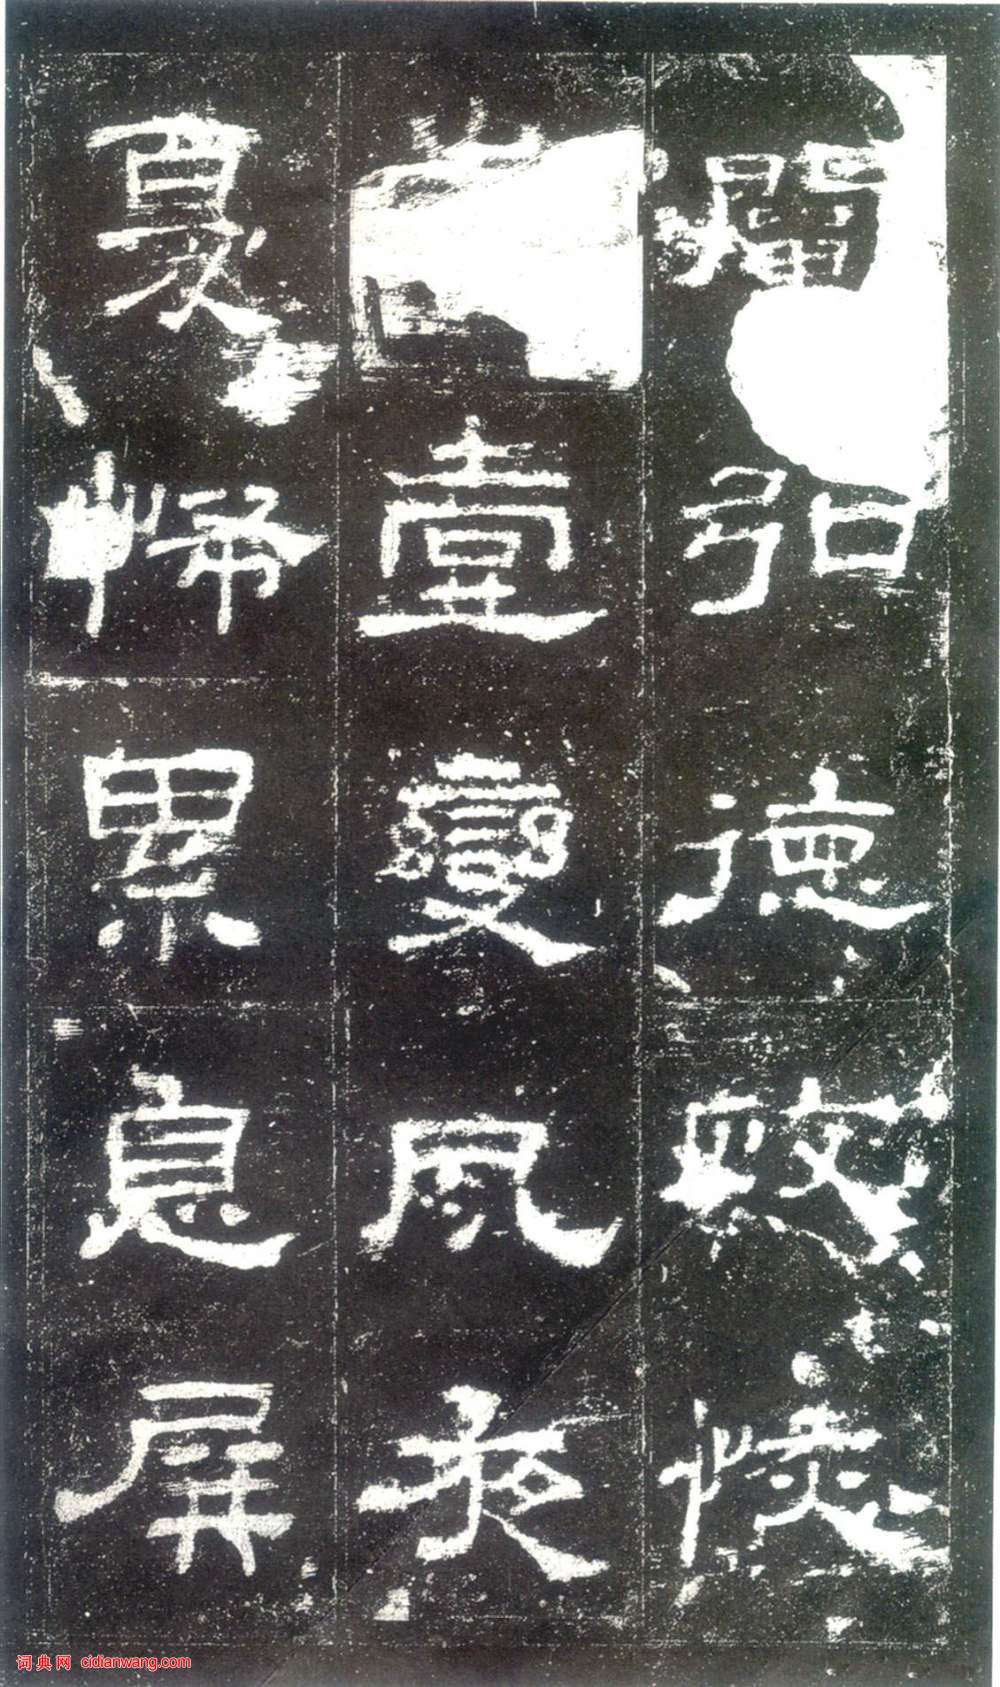 闡弘德政恢
壹變夙夜
憂怖累息屏
词典网 cidianwang.com